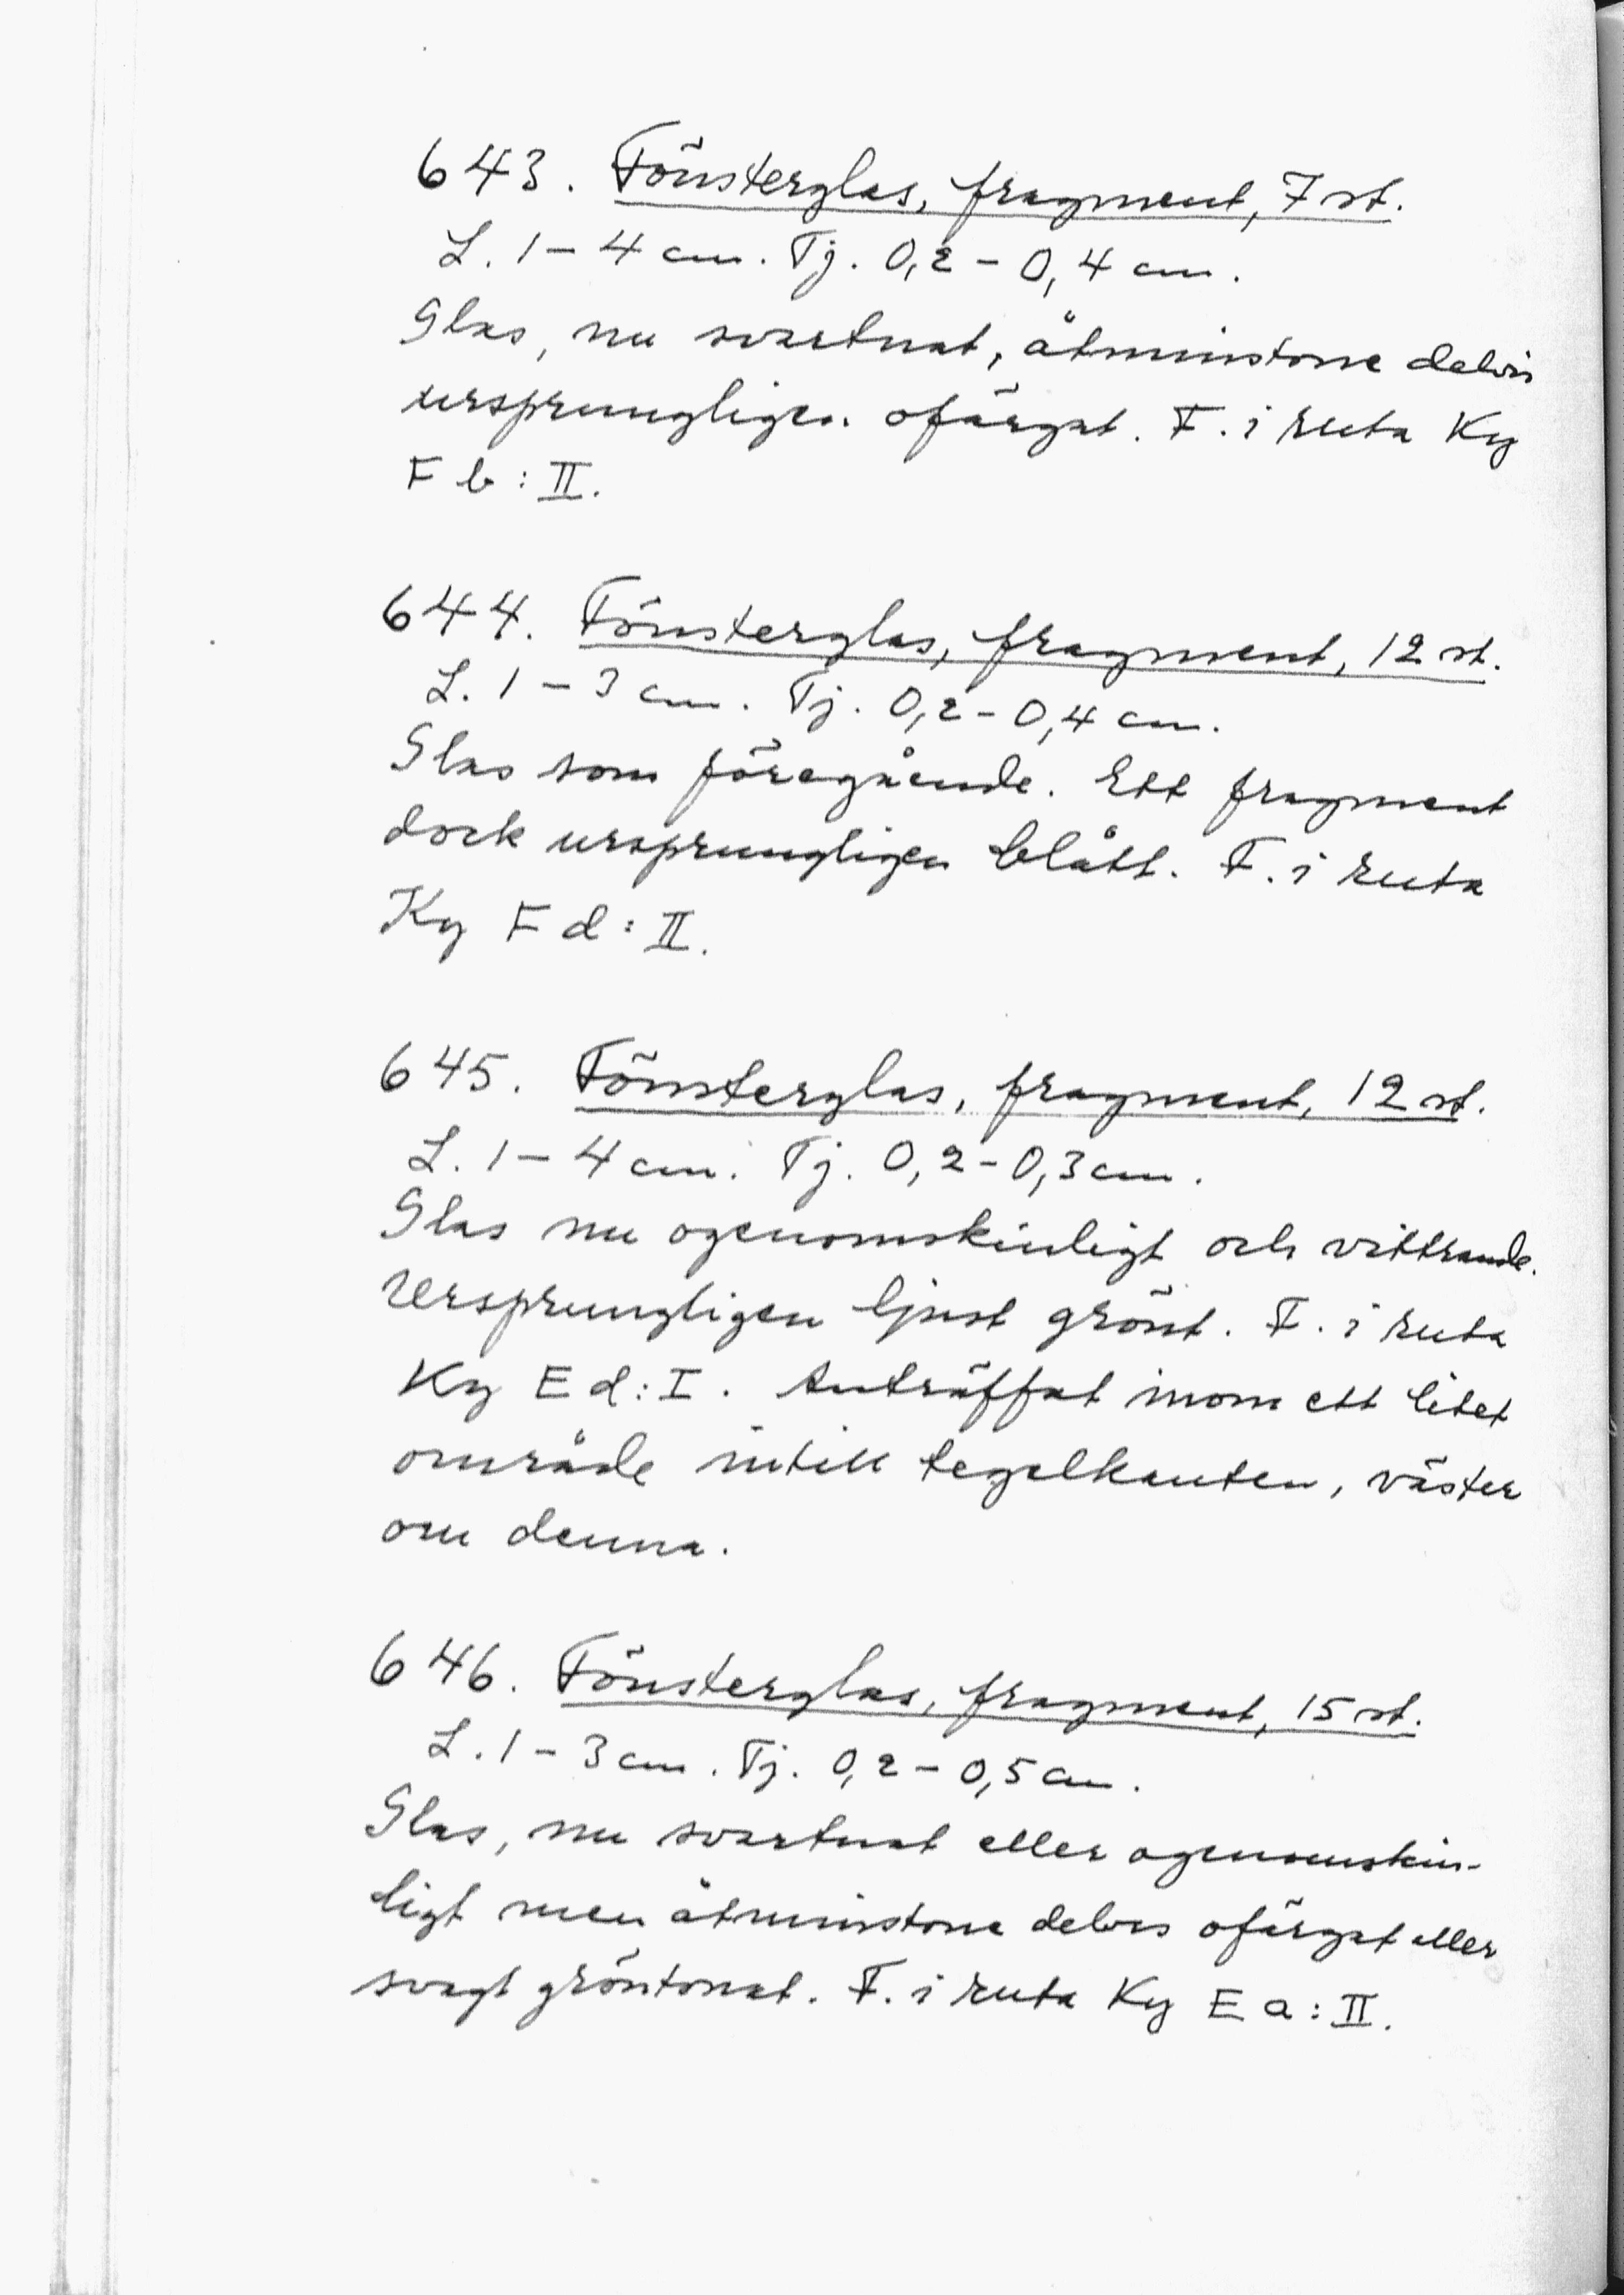 643. Fönsterglas, fragment, 7 st.
L. 1 – 4 cm. Tj. 0,2 – 0,4 cm.
Glas, nu svartnat, åtminstone delvis
ursprungligen ofärgat. F. i ruta Ky
F b : II.
644. Fönsterglas, fragment, 12 st.
L. 1 – 3 cm. Tj. 0,2 – 0,4 cm.
Glas som föregående. Ett fragment
dock ursprungligen blått. F. i ruta
Ky F d : II.
645. Fönsterglas, fragment, 12 st.
L. 1 – 4 cm. Tj. 0,2 – 0,3 cm.
Glas nu ogenomskinligt och vittrande.
Ursprungligen ljust grönt. F. i ruta
Ky E d : I. Anträffat inom ett litet
område intill tegelkanten, väster
om denna.
646. Fönsterglas, fragment, 15 st.
L. 1 – 3 cm. Tj. 0,2 – 0,5 cm.
Glas, nu svartnat eller ogenomskin-
ligt men åtminstone delvis ofärgat eller
svagt gröntonat. F. i ruta Ky E a : II.